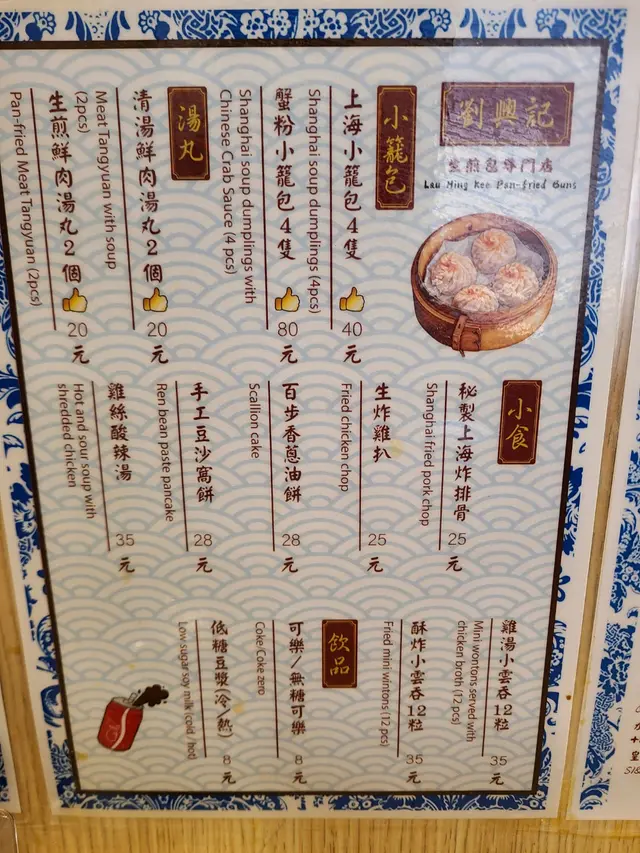 劉興記
生煎包專門店
Lau Hing Kee Pan-fried Buns
小籠包
上海小籠包4隻
Shanghai soup dumplings (4pcs)
40元
蟹粉小籠包4隻
Shanghai soup dumplings with
Chinese Crab Sauce (4 pcs)
80元
湯丸
清湯鮮肉湯丸2個
Meat Tangyuan with soup
(2pcs)
20元
生煎鮮肉湯丸2個
Pan-fried Meat Tangyuan (2pcs)
20元
小食
秘製上海炸排骨
Shanghai fried pork chop
25元
生炸雞扒
Fried chicken chop
25元
百步香蔥油餅
Scallion cake
28元
手工豆沙窩餅
Ren bean paste pancake
28元
雞絲酸辣湯
Hot and sour soup with
shredded chicken
35元
雞湯小雲吞12粒
Mini wontons served with
chicken broth (12 pcs)
35元
酥炸小雲吞12粒
Fried mini wintons (12 pcs)
35元
飲品
可樂/無糖可樂
Coke/Coke zero
8元
低糖豆漿(冷/熱)
Low sugar soy milk (cold / hot)
8元